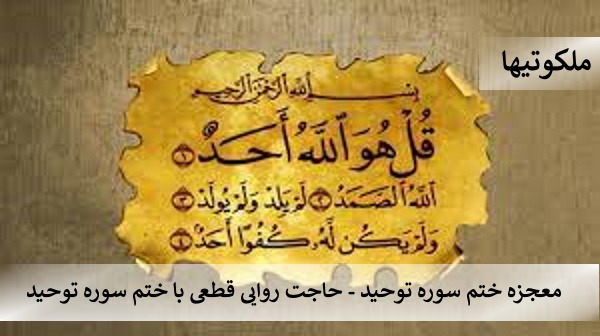 ملکوتیها
بِسْمِ ٱللَّهِ ٱلرَّحْمَٰنِ ٱلرَّحِيمِ
قُلْ هُوَ ٱللَّهُ أَحَدٌ ١
ٱللَّهُ ٱلصَّمَدُ ٢ لَمْ يَلِدْ وَلَمْ يُولَدْ ٣
وَلَمْ يَكُن لَّهُۥ كُفُوًا أَحَدٌ ٤
معجزه ختم سوره توحید - حاجت روایی قطعی با ختم سوره توحید